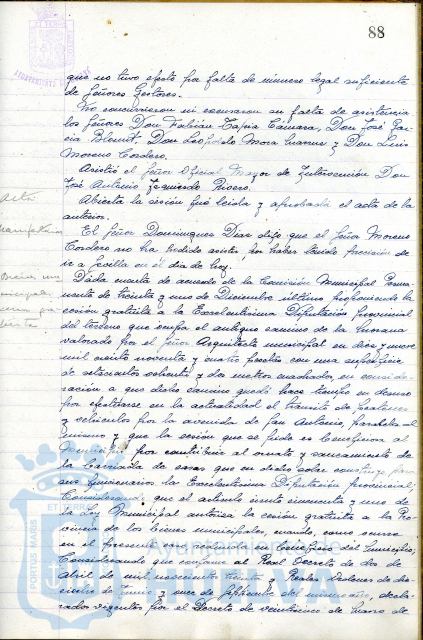 88
que no tuvo efecto por falta de número legal suficiente
de Señores Gestores.
No concurrieron ni excusaron su falta de asistencia
los Señores Don Fabián Tapia Cámara, Don José Gar-
cía Don Leopoldo Mora y Don Luis
Moreno Cordero.
Asistió el Señor Oficial Mayor de Intervención Don
José Antonio Izquierdo
Abierta la sesión fué leída y aprobada el acta de la
anterior.
Acta
El Señor Domínguez Díaz dijo que el Señor Moreno
Cordero no ha podido asistir por haber tenido precisión de
ir a Sevilla en el día de hoy.
Dada cuenta de acuerdo de la Comisión Municipal Perma-
nente de treinta y uno de Diciembre último proponiendo la
cesión gratuita a la Excelentísima Diputación provincial
del terreno que ocupa el antiguo camino de la
valorado por el Señor Arquitecto municipal en diez y nueve
mil ciento noventa y cuatro pesetas con una superficie
de setecientos ochenta y dos metros cuadrados, en conside-
ración a que dicho camino quedó hace tiempo en desuso
por efectuarse en la actualidad el tránsito de peatones
y vehículos por la avenida de San Antonio, paralela al
mismo y que la cesión que se pide es beneficiosa al
Municipio por contribuir al ornato y saneamiento de
la barriada de casas que en dicho solar construye para
sus funcionarios la Excelentísima Diputación provincial;
Considerando que el artículo ciento cincuenta y uno de
la Ley Municipal autoriza la cesión gratuita a la Pro-
vincia de los bienes municipales, cuando como ocurre
en el presente caso, redunda en beneficio del Municipio;
Considerando que conforme al Real Decreto de dos de
abril de mil novecientos treinta y Reales Ordenes de die-
cinueve de junio y once de septiembre del mismo año, decla-
rados vigentes por el Decreto de veinticinco de marzo de
Ayuntamiento de
HUELVA
PORTUS MARIS
ET TERRAE